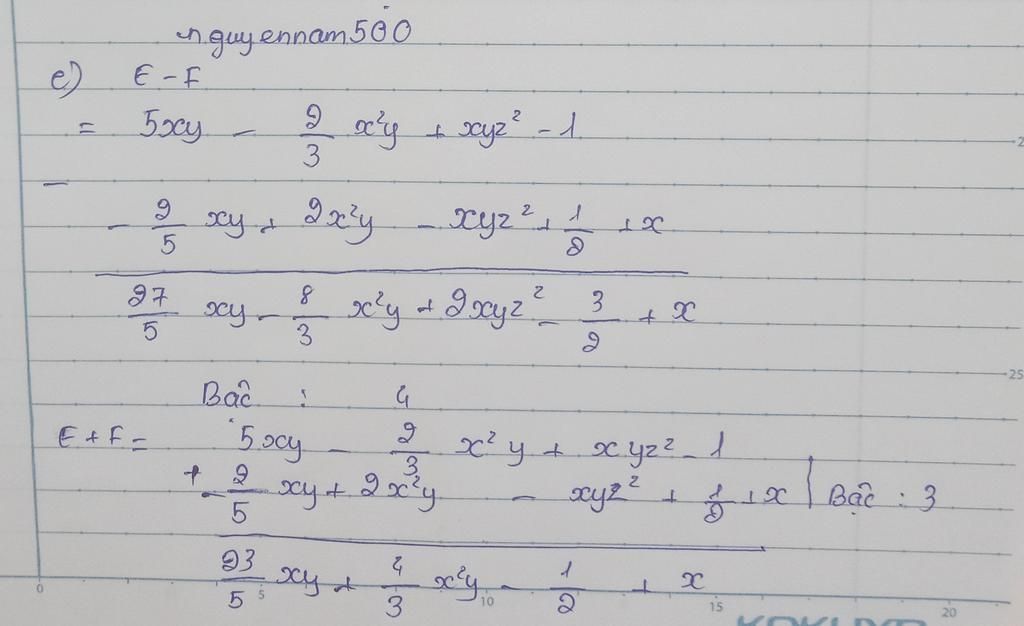 nguyennam500
e) E - F
= 5xy - 2/3 x²y + xyz² - 1
-
- 2/5 xy + 2x²y - xyz² + 1/2 + x
27/5 xy - 8/3 x²y + 2xyz² - 3/2 + x
Bậc : 4
E + F = 5xy - 2/3 x²y + xyz² - 1
+ - 2/5 xy + 2x²y - xyz² + 1/2 + x | Bậc : 3
23/5 xy + 4/3 x²y - 1/2 + x
0 5 10 15 20
25